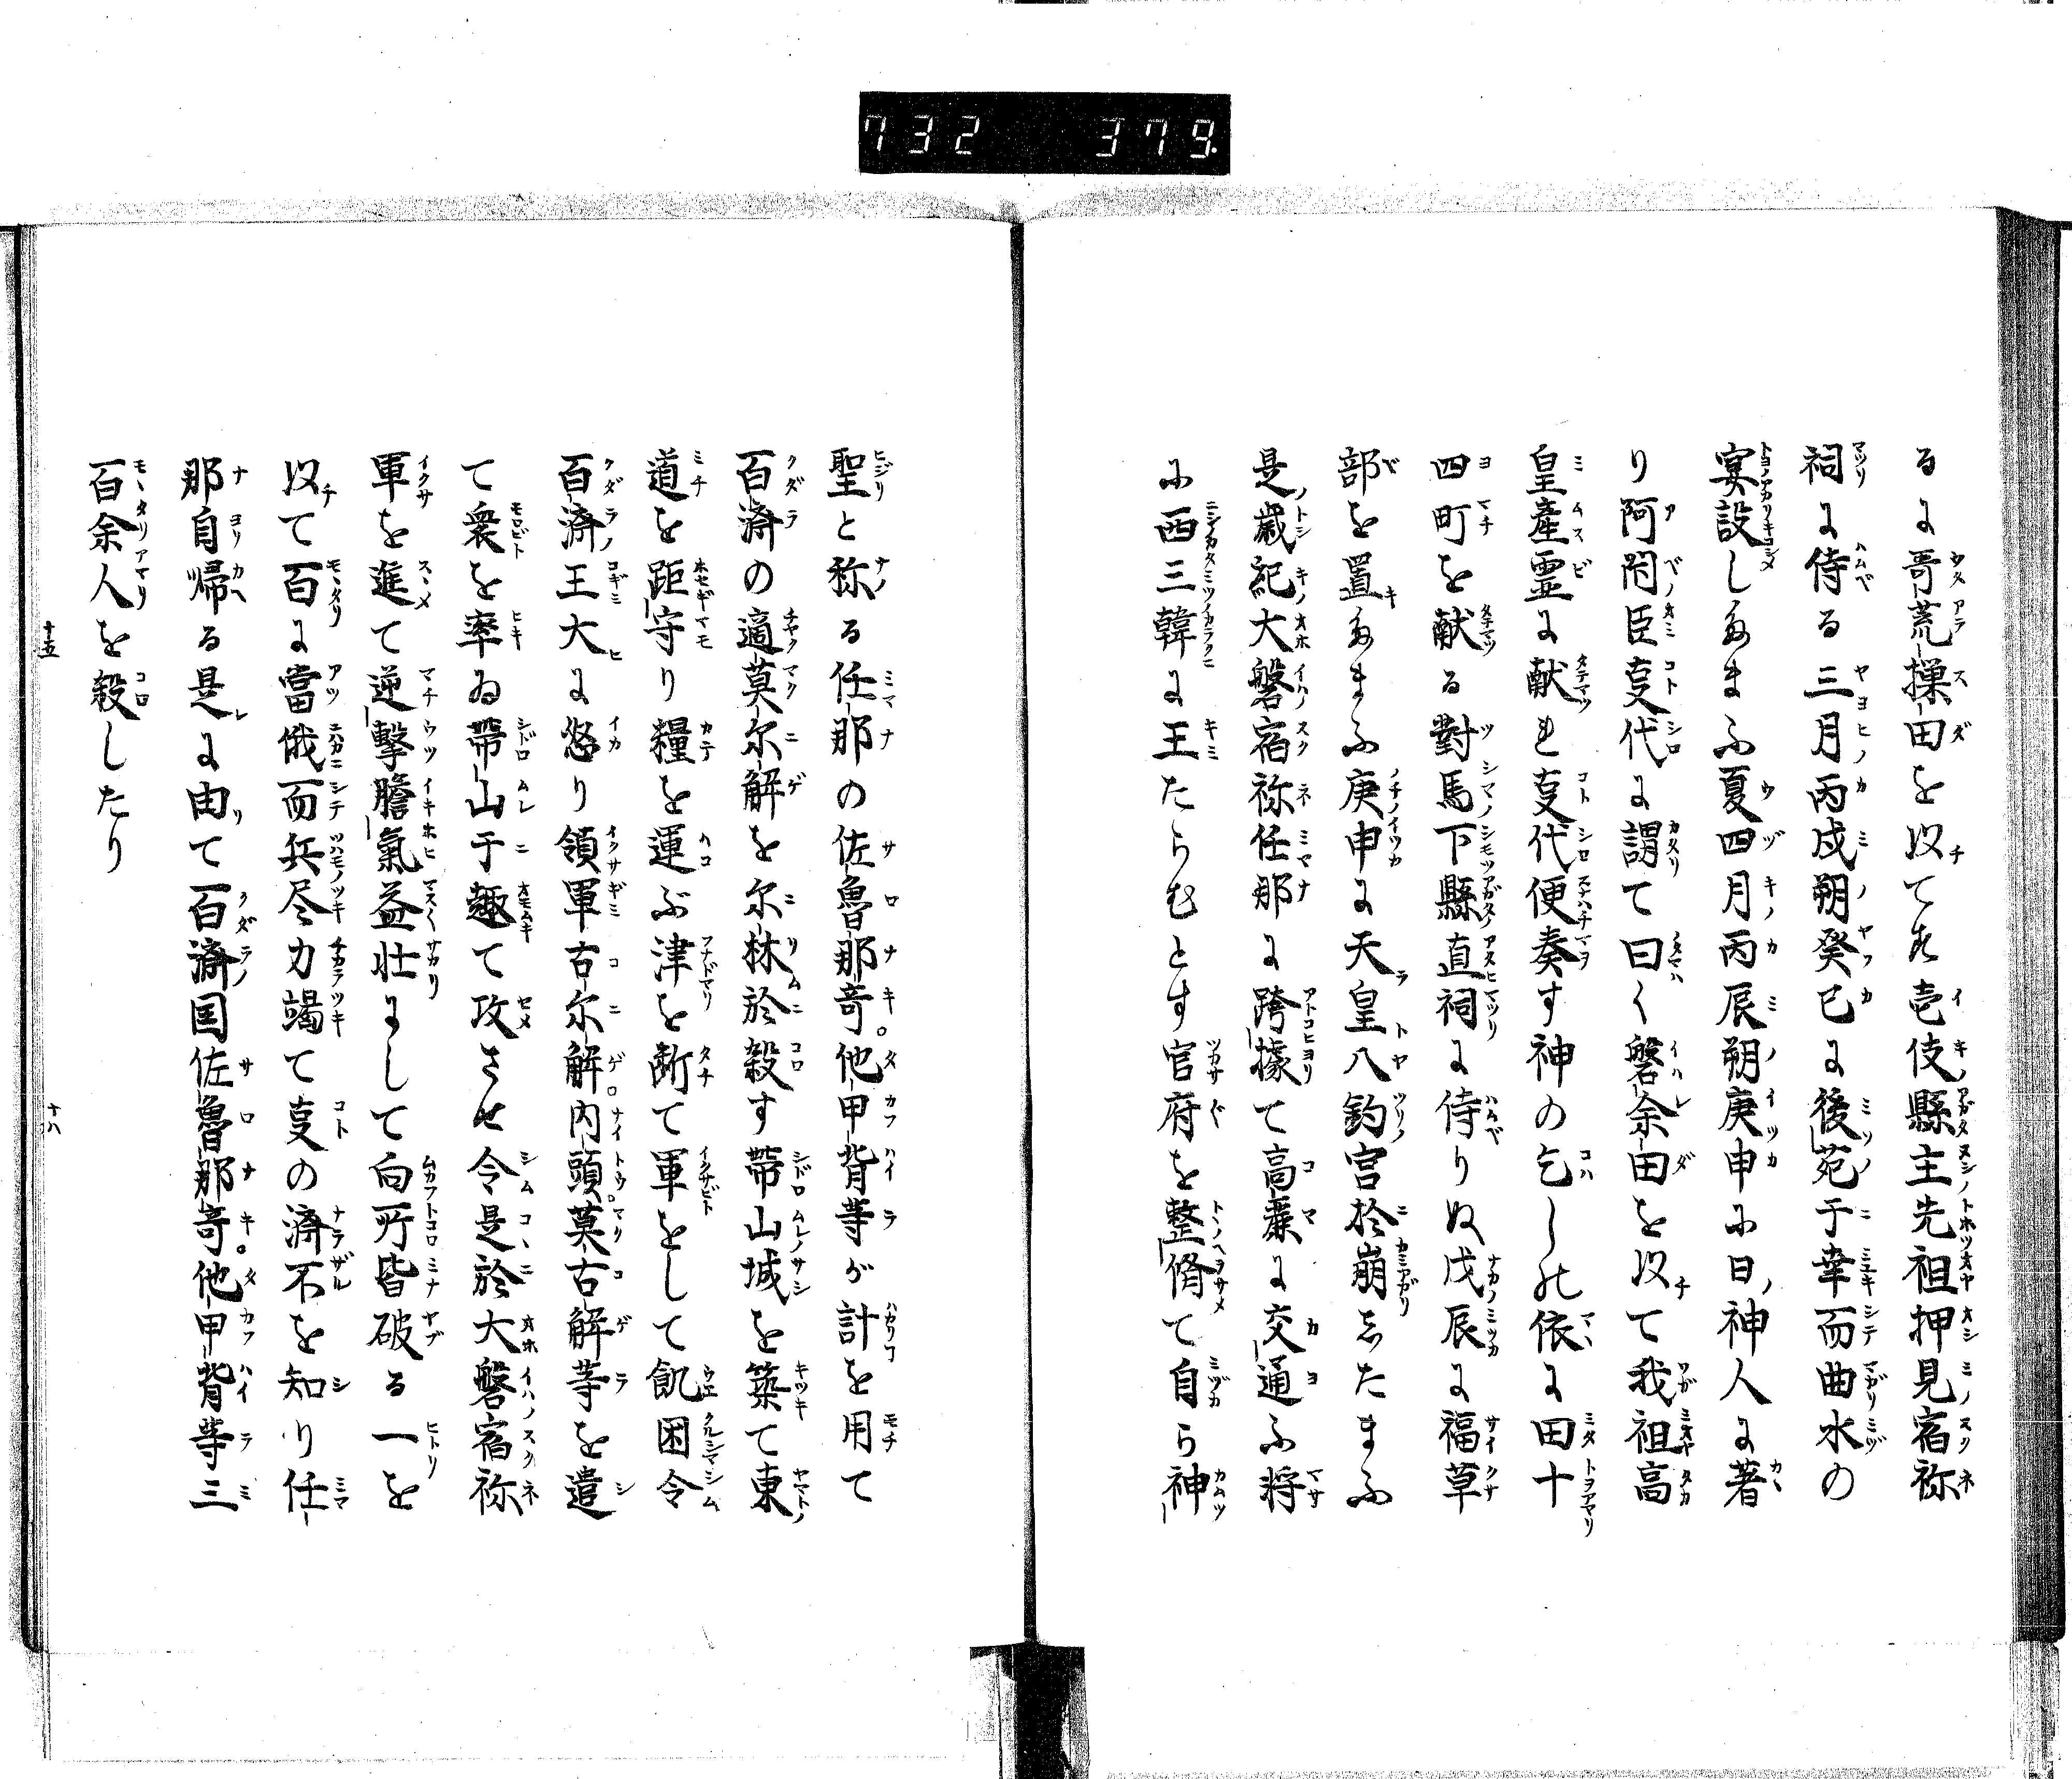 732 379.
るに哥荒樔田を以てす壱伎縣主先祖押見宿祢
祠に侍る三月丙戌朔癸巳に後苑于幸而曲水の
宴設したまふ夏四月丙辰朔庚申に日ノ神人に著
り阿閇臣事代に謂て曰く磐余田を以て我祖高
皇産霊に献れ事代便奏す神の乞しの依に田十
四町を献る對馬下縣直祠に侍りぬ戊辰に福草
部を置たまふ庚申に天皇八釣宮於崩したまふ
是歳紀大磐宿祢任那に跨據て高麗に交通ふ将
に西三韓に王たらむとす官府を整脩て自ら神
聖と称る任那の佐魯那奇。他甲背等が計を用て
百済の適莫尓解を尓林於殺す帯山城を築て東
道を距守り糧を運ぶ津を断て軍をして飢困令
百済王大に怒り領軍古尓解。内頭。莫古解等を遣
て衆を率ゐ帯山于趣て攻させ令是於大磐宿祢
軍を進て逆撃膽氣益壮にして向所皆破る一を
以て百に當俄而兵尽力竭て事の済不を知り任
那自帰る是に由て百済国佐魯那奇。他甲背等三
百余人を殺したり
十五
十八